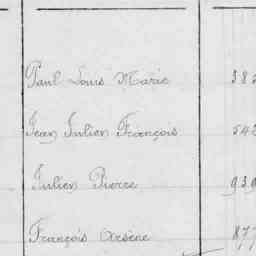 Paul Louis Marie 382
Jean Julien François 542
Julien Pierre 939
François Arsène 877